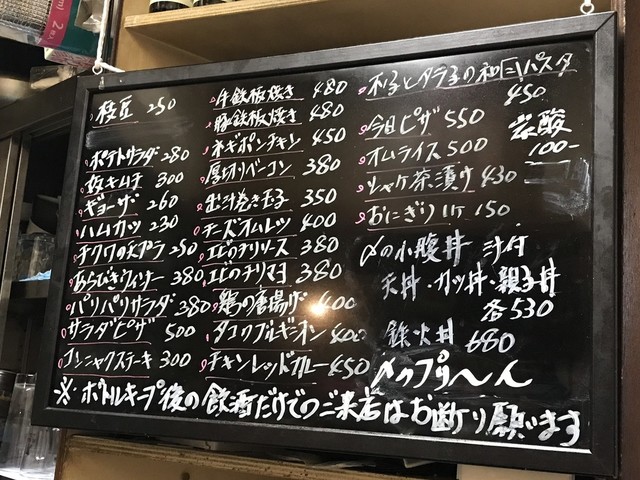 枝豆 250
ポテトサラダ 280
生キムチ 300
ギョーザ 260
ハムカツ 230
チクワの天プラ 250
あらびきウィンナー 380
パリパリサラダ 380
サラダピザ 500
コンニャクステーキ 300
牛鉄板焼き 480
豚鉄板焼き 480
ネギポンチキン 450
厚切りベーコン 380
出汁巻き玉子 350
チーズオムレツ 400
エビのチリソース 380
エビのチリマヨ 380
鶏の唐揚げ 400
タコのブルギニオン 400
チキンレッドカレー 450
タラ子の和風パスタ
450
今日ピザ 550
炭酸
100-
オムライス 500
シャケ茶漬け 430
おにぎり1ケ 150
〆の小腹丼 汁付
天丼・カツ丼・親子丼
各530
鉄火丼 680
〆のプリへん
※・ボトルキープ後の飲酒だけでのご来店はお断り願います